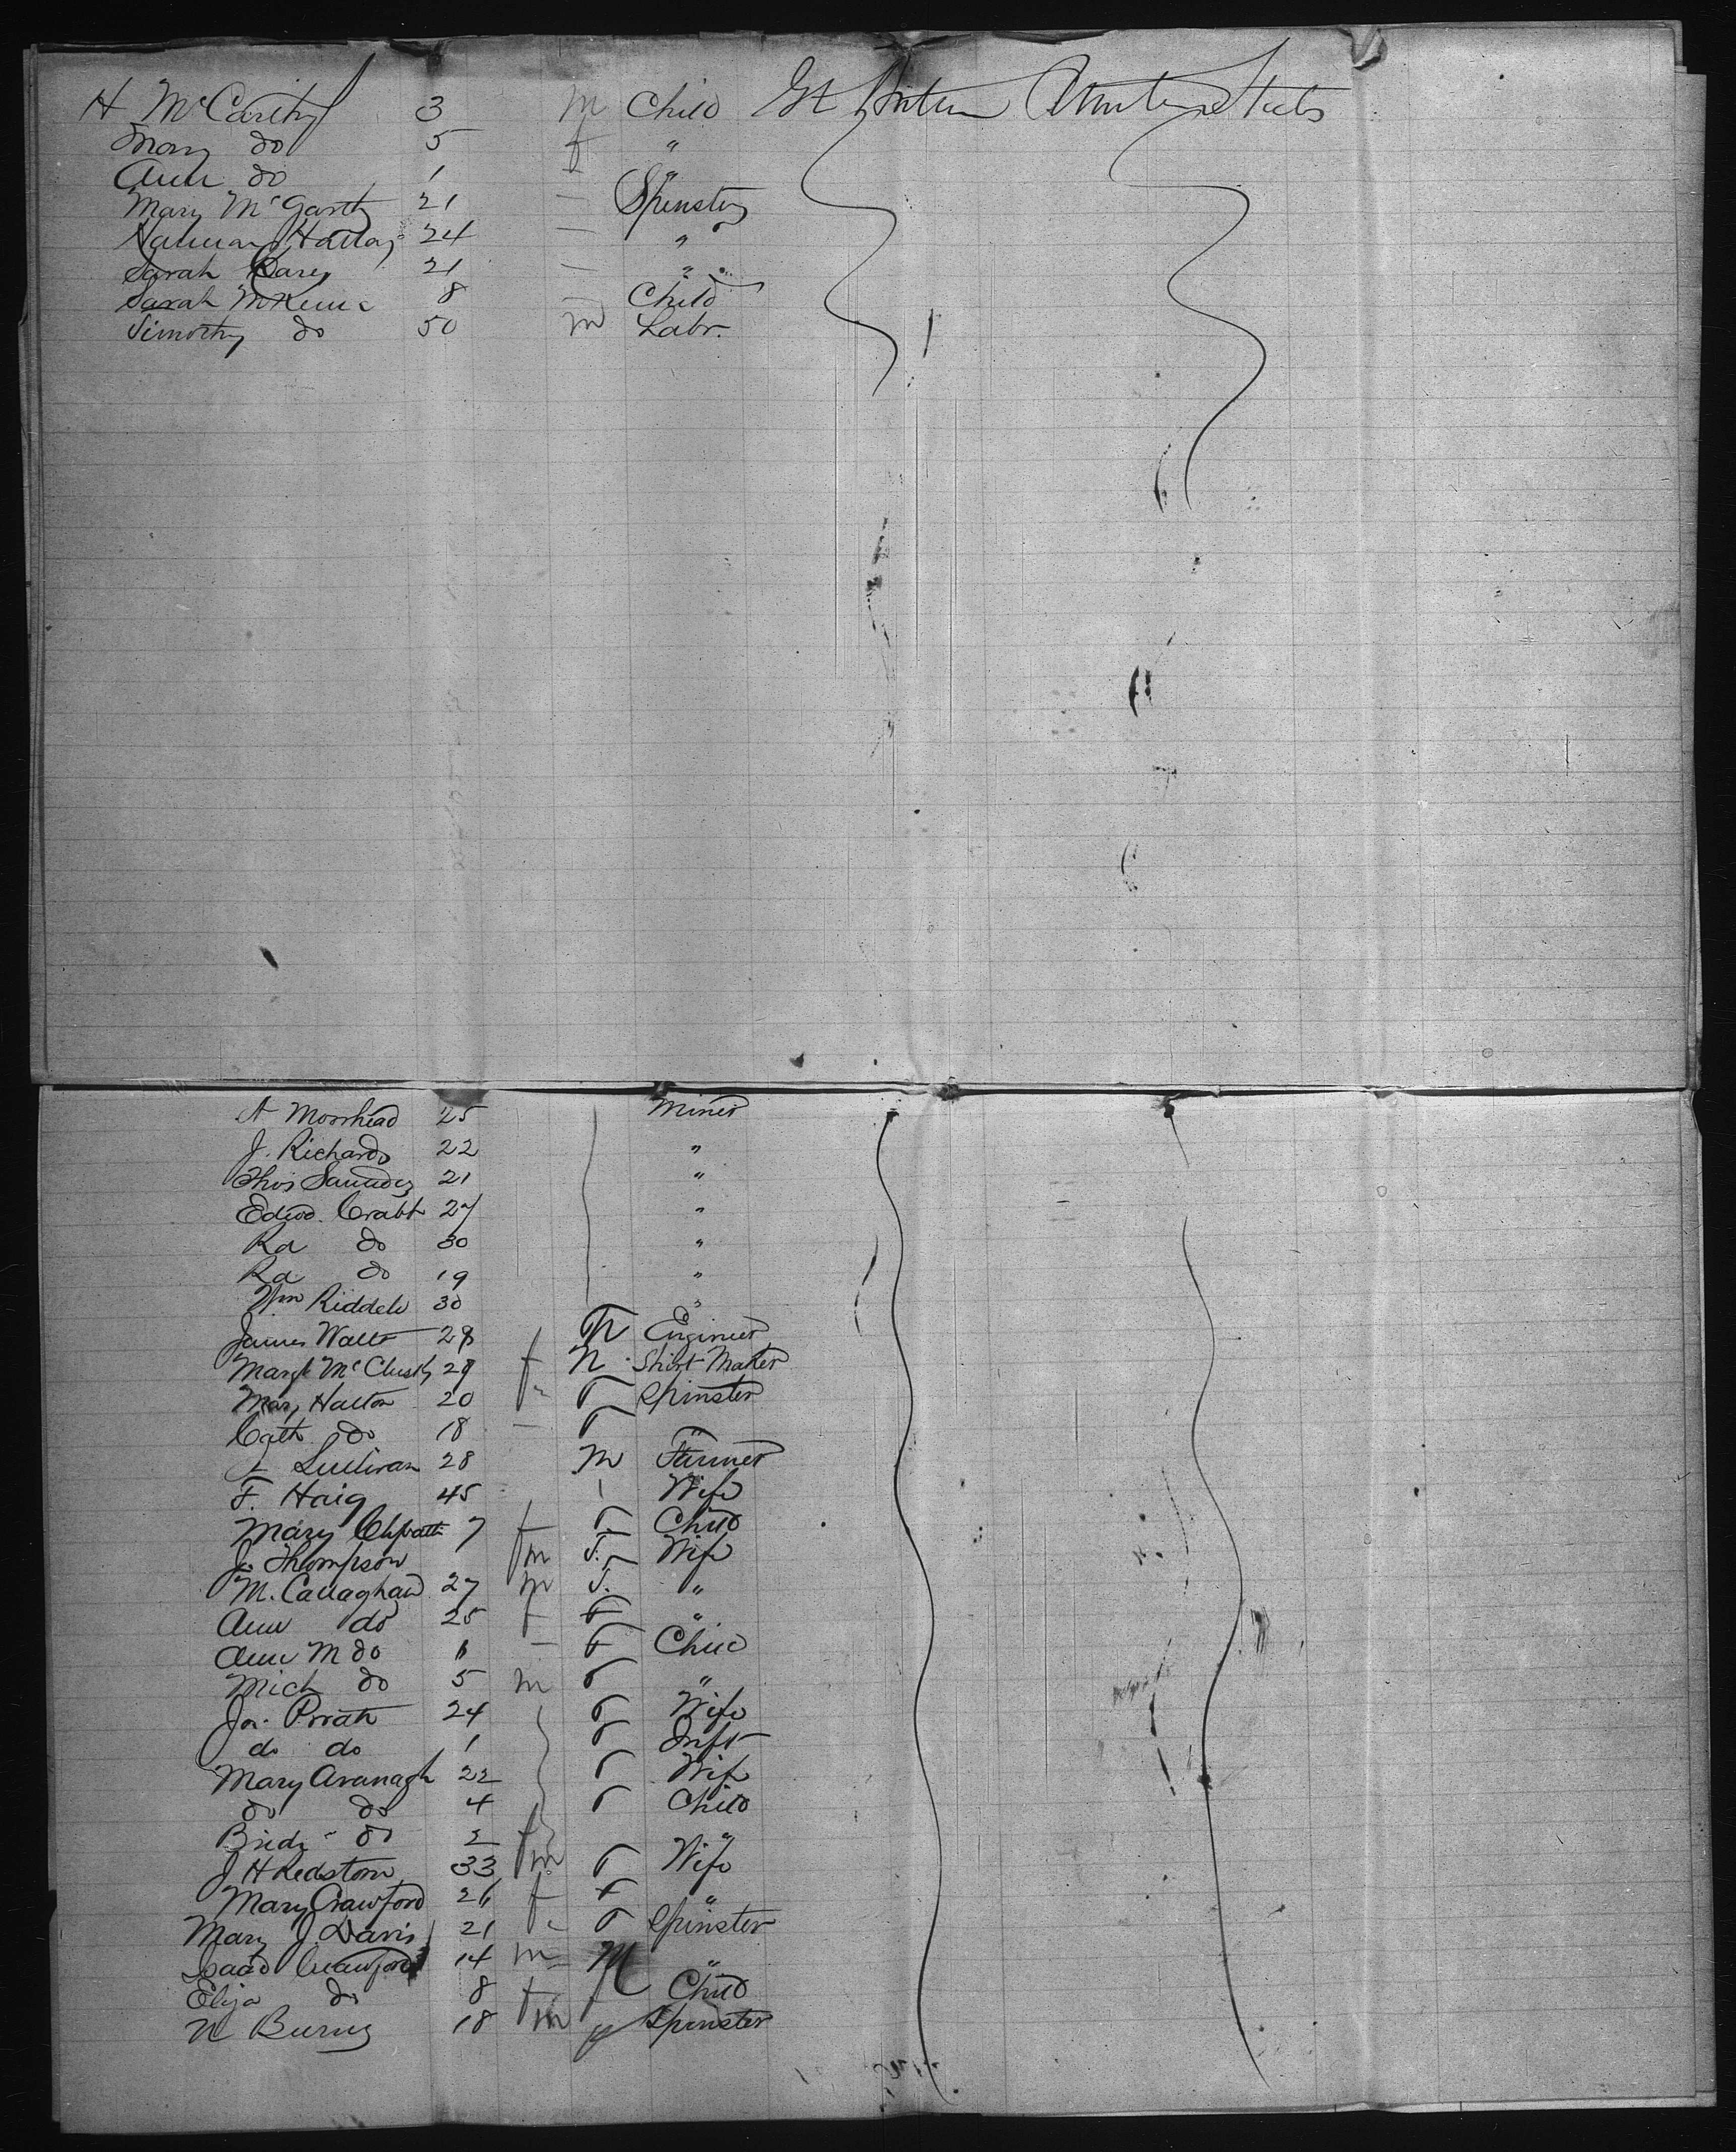 H McCarthy 3 m Child Gt Britain United States
Mary do 5 f "
Ann do 1 "
Mary McGarth 21 — Spinster
24 — "
Sarah Carey 21 — "
Sarah McKenna 8 — Child
Timothy do 50 m Labr.
A Morrhead 25 Miner
J. Richards 22 "
Thos Saunders 21 "
Edwd. Crabb 27 "
Rd do 30 "
Rd do 19 "
Wm Riddell 30 "
James Watt 28 Engineer
Margt McClusky 29 f Shirt Maker
Mary Halton 20 " Spinster
Cath do 18 — "
Sullivan 28 m Farmer
F. Haig 45 Wife
Mary 7 f Child
J. Thompson m Wife
M. Callaghan 27 m "
Ann do 25 f "
Ann M do — Child
Mich do 5 m "
Jos. 24 Wife
do do 1 Inft
Mary Cavanagh 22 Wife
do do 4 Child
Bridg do 2 f "
J H Redstone 33 m Wife
Mary Crawford 26 f "
Mary J. Davis 21 " Spinster
Isaac Crawford 14 m M "
Eliza do 8 f Child
N Burns 18 m Spinster